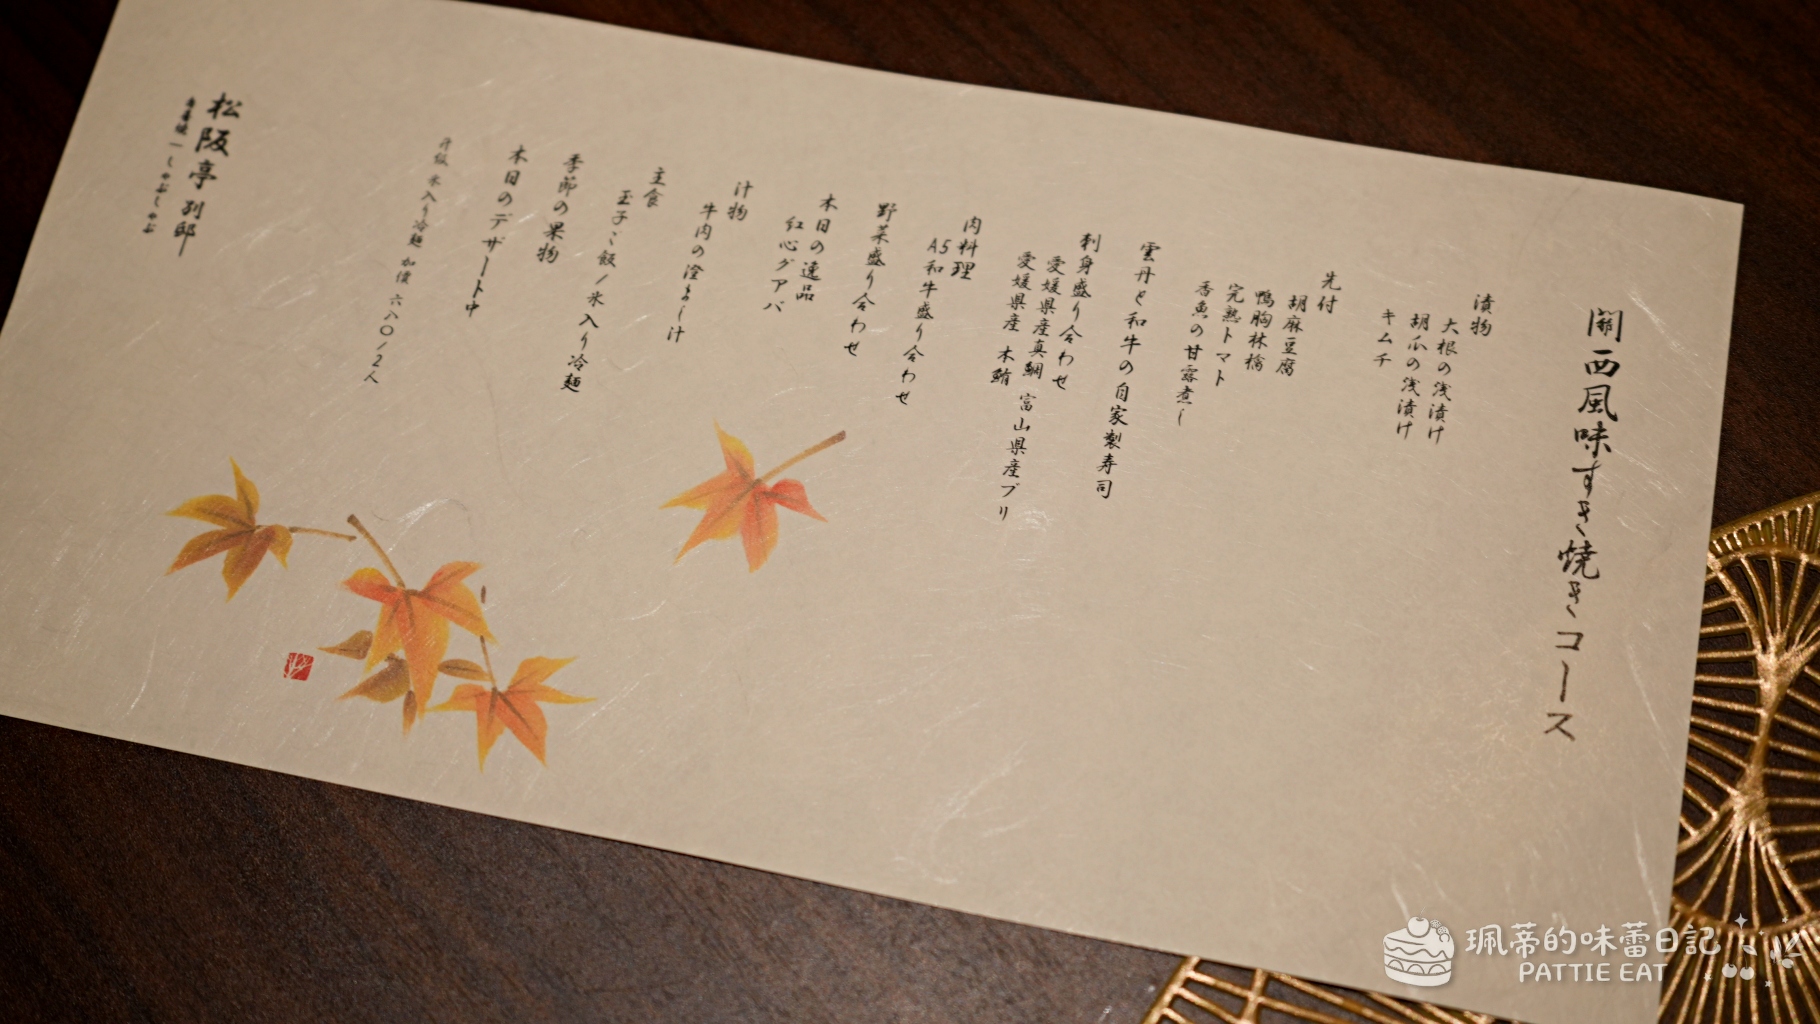 關西風味すき焼きコース
漬物
大根の浅漬け
胡瓜の浅漬け
キムチ
先付
胡麻豆腐
鴨胸林檎
完熟トマト
香魚の甘露煮し
雲丹と和牛の自家製寿司
刺身盛り合わせ
愛媛県産真鯛 富山県産ブリ
愛媛県産 本鮪
肉料理
A5和牛盛り合わせ
野菜盛り合わせ
本日の逸品
紅心グアバ
汁物
牛肉の澄まし汁
主食
玉子ご飯/氷入り冷麺
季節の果物
本日のデザート中
升級 氷入り冷麺 加價 六八〇/2人
松阪亭 別邸
壽喜燒-しゃぶしゃぶ
珮蒂的味蕾日記
PATTIE EAT